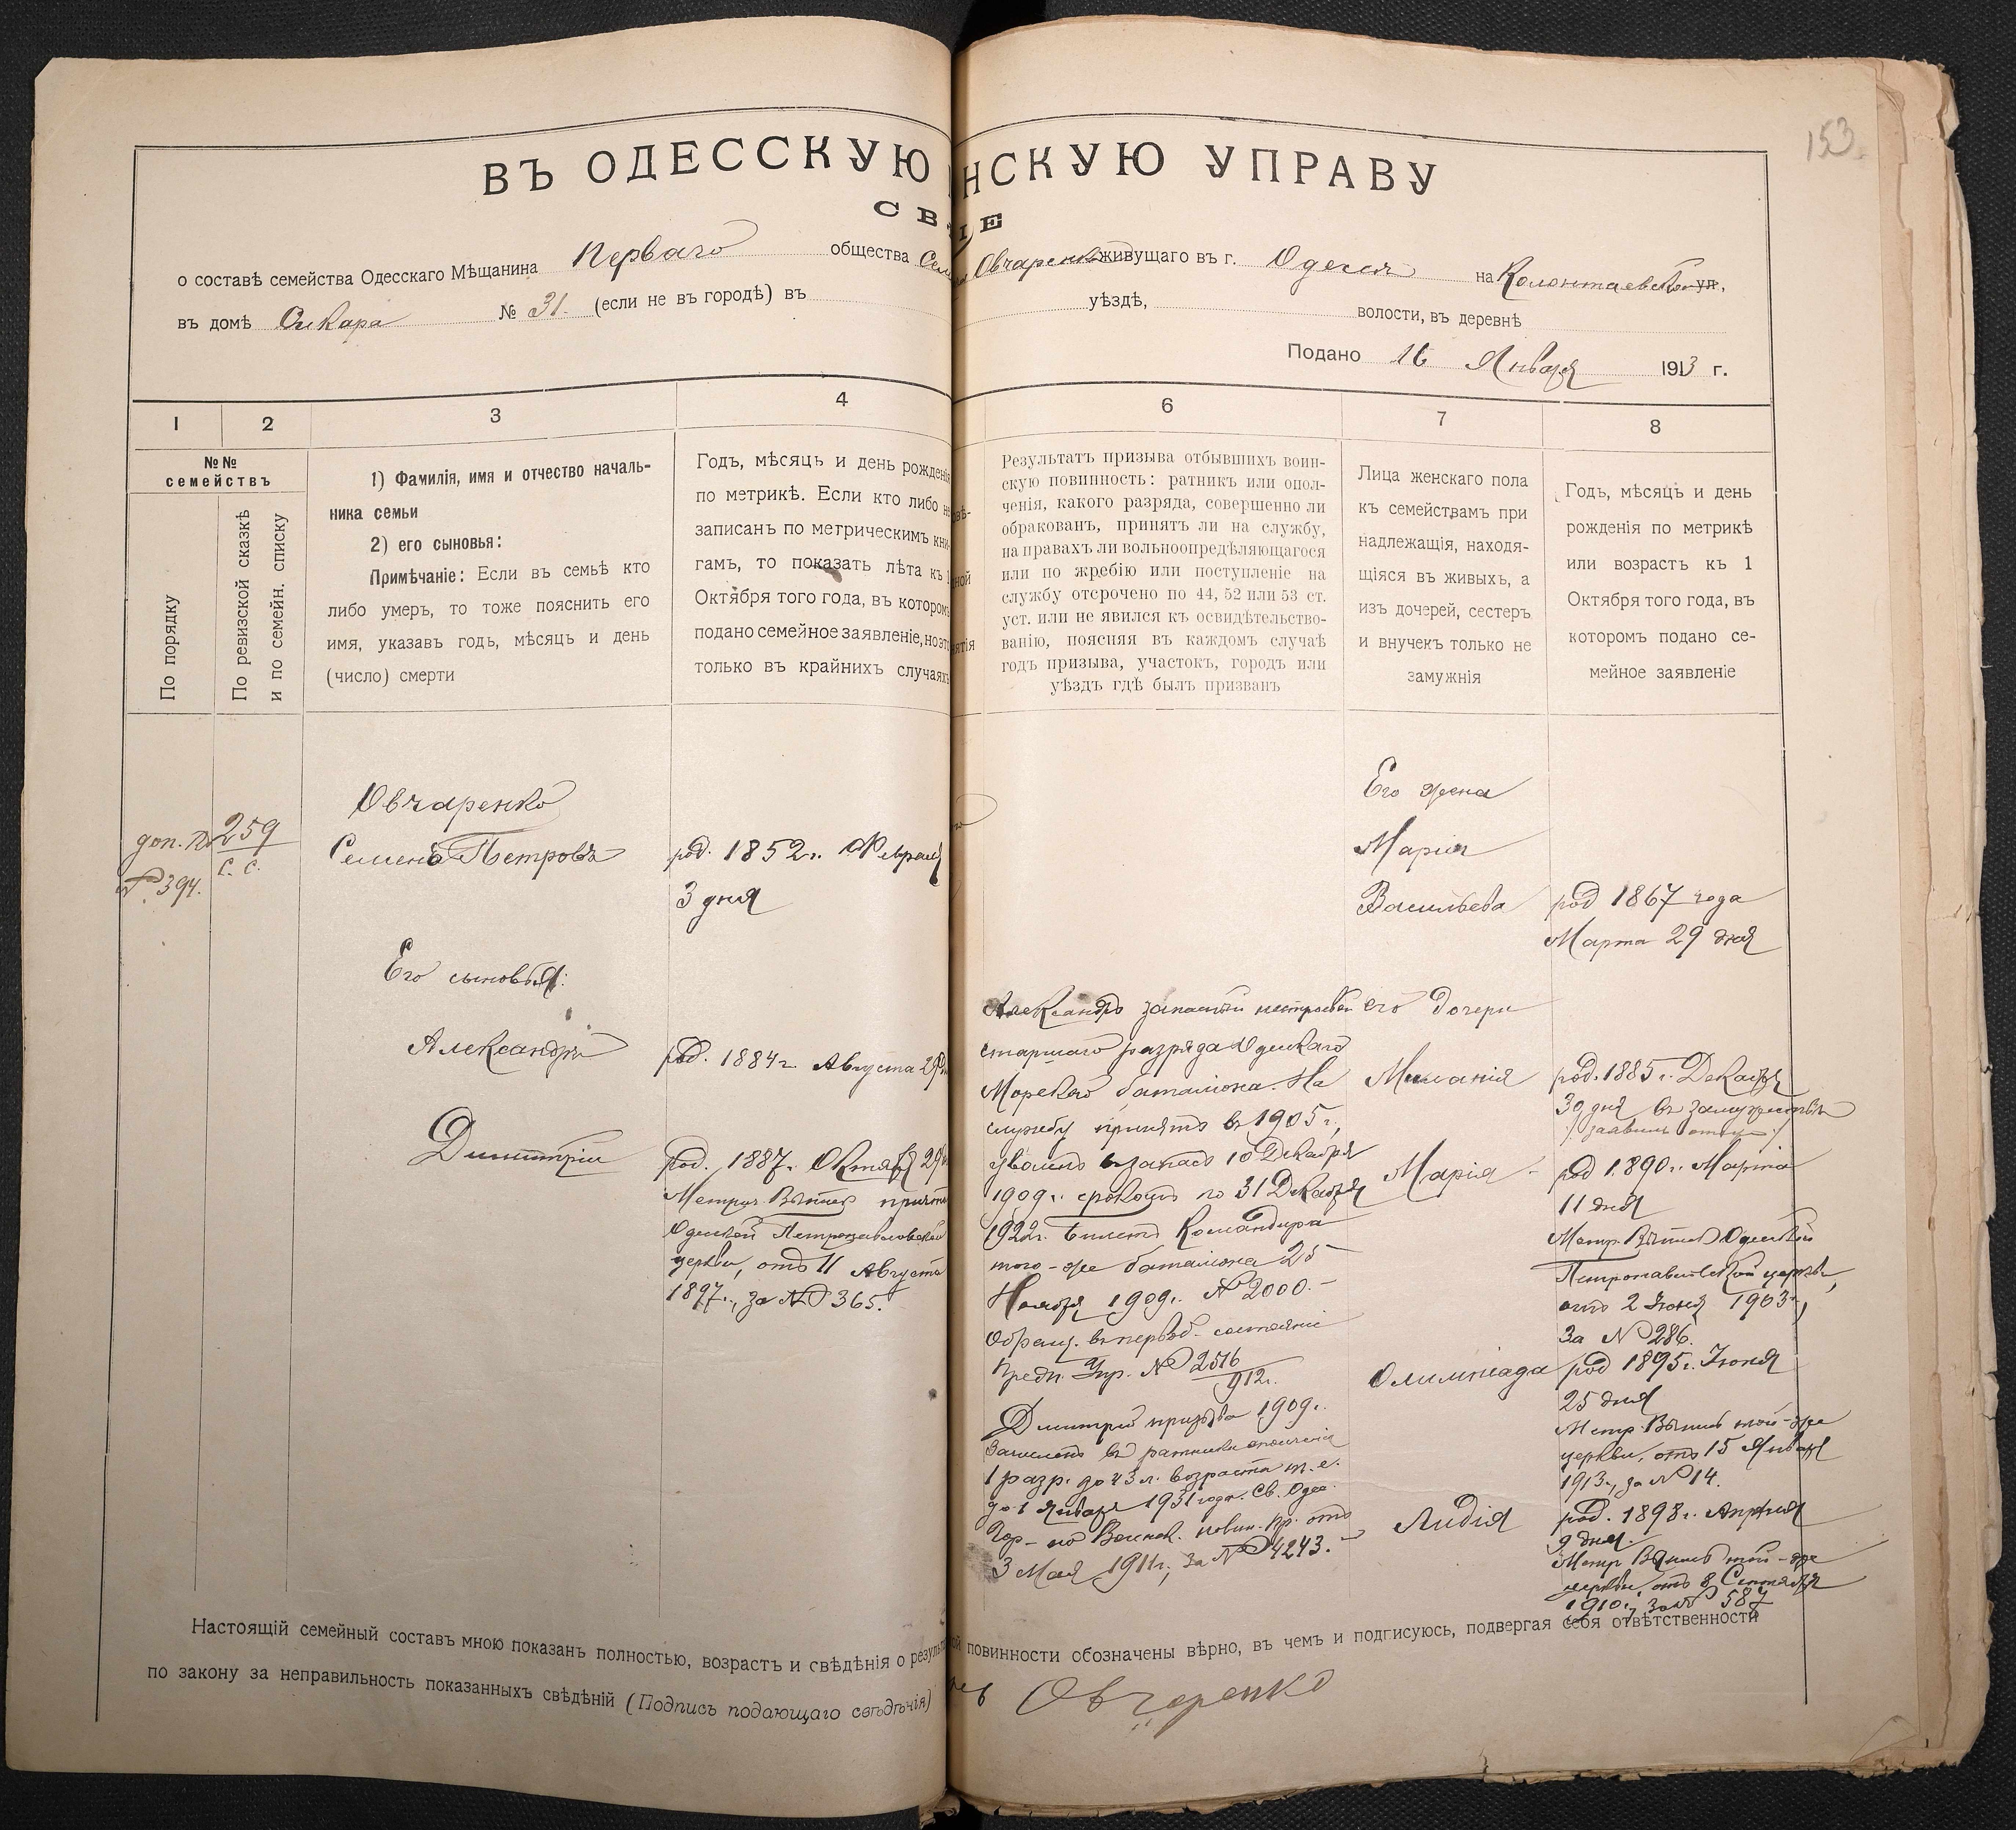 153
ВЪ ОДЕССКУЮ НСКУЮ УПРАВУ
СВ ІЕ
о составѣ семейства Одесскаго Мѣщанина Перваго общества Овчаренко живущаго въ г. Одессѣ на Колонтаевской ул.,
въ домѣ № 31. (если не въ городѣ) въ уѣздѣ, волости, въ деревнѣ
Подано 16 Января 1913 г.
1 2 3 4 6 7 8
№№ семействъ
По порядку
По ревизской сказкѣ
и по семейн. списку
1) Фамилія, имя и отчество началь-
ника семьи
2) его сыновья:
Примѣчаніе: Если въ семьѣ кто
либо умеръ, то тоже пояснить его
имя, указавъ годъ, мѣсяцъ и день
(число) смерти
Годъ, мѣсяцъ и день рожденія
по метрикѣ. Если кто либо не
записанъ по метрическимъ кни-
гамъ, то показать лѣта къ 1
Октября того года, въ которомъ
подано семейное заявленіе, но это
только въ крайнихъ случаяхъ
Результатъ призыва отбывшихъ воин-
скую повинность: ратникъ или опол-
ченія, какого разряда, совершенно ли
обракованъ, принятъ ли на службу,
на правахъ ли вольноопредѣляющагося
или по жребію или поступленіе на
службу отсрочено по 44, 52 или 53 ст.
уст. или не явился къ освидѣтельство-
ванію, поясняя въ каждомъ случаѣ
годъ призыва, участокъ, городъ или
уѣздъ гдѣ былъ призванъ
Лица женскаго пола
къ семействамъ при
надлежащія, находя-
щіяся въ живыхъ, а
изъ дочерей, сестеръ
и внучекъ только не
замужнія
Годъ, мѣсяцъ и день
рожденія по метрикѣ
или возрастъ къ 1
Октября того года, въ
которомъ подано се-
мейное заявленіе
доп.
№ 394.
259
с. с.
Овчаренко
Семенъ Петровъ
Его сыновья:
Александръ
Димитрій
род. 1852 г. Февраля
3 дня
род. 1884 г. Августа 29
род. 1887 г. Октября 25
Метрич. Выпись причта
Одесской Петропавловской
церкви, отъ 11 Августа
1897 г., за № 365.
Александръ запасный нестроевой
старшаго разряда Одесскаго
Морского баталіона. На
службу принятъ въ 1905 г.,
уволенъ въ запасъ 10 Декабря
1909 г. срокомъ по 31 Декабря
1922 г. Билетъ Командира
того-же баталіона 25
Ноября 1909 г. № 2000.
Обращ. въ первоб. состояніе
Предп. Упр. № 2516
912 г.
Димитрій призыва 1909 г.
зачисленъ въ ратники ополченія
1 разр. до 43 л. возраста т. е.
до 1 Января 1931 года. Св. Одес.
Гор- по Воинск. повин. пр. отъ
3 Мая 1911 г., за № 4243.
Его жена
Марія
Васильева
его дочери
Меланія
Марія
Олимпіада
Лидія
род 1867 года
Марта 29 дня
род. 1885 г. Декабря
30 дня въ замужествѣ
/заявилъ отецъ/
род 1890 г. Марта
11 дня
Метр. Выпись Одесской
Петропавловской церкви,
отъ 2 Іюня 1903 г.,
за № 286.
род 1895 г. Іюня
25 дня
Метр. Выпись той-же
церкви, отъ 15 Января
1913 г., за № 14.
род. 1898 г. Апрѣля
9 дня.
Метр Выпись той-же
церкви, отъ 8 Сентября
1910 г., за № 587
Настоящій семейный составъ мною показанъ полностью, возрастъ и свѣдѣнія о резуль ой повинности обозначены вѣрно, въ чемъ и подписуюсь, подвергая себя отвѣтственности
по закону за неправильность показанныхъ свѣдѣній (Подпись подающаго свѣдѣнія) Овчаренко